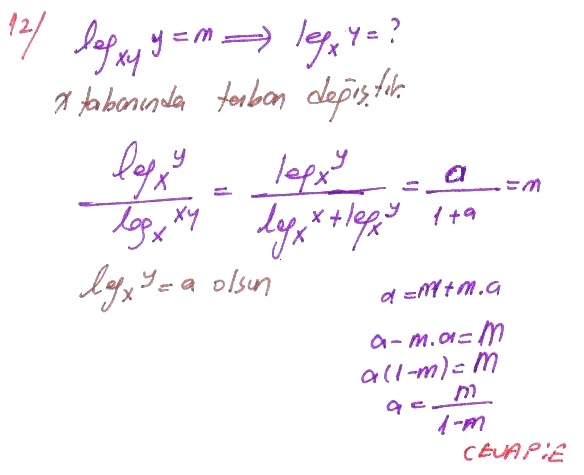 12/ log_xy y = m ⟹ log_x y = ?
x tabanında taban değiştir.
log_x y / log_x xy = log_x y / (log_x x + log_x y) = a / (1+a) = m
log_x y = a olsun
a = m + m.a
a - m.a = m
a(1-m) = m
a = m / (1-m)
CEVAP:E